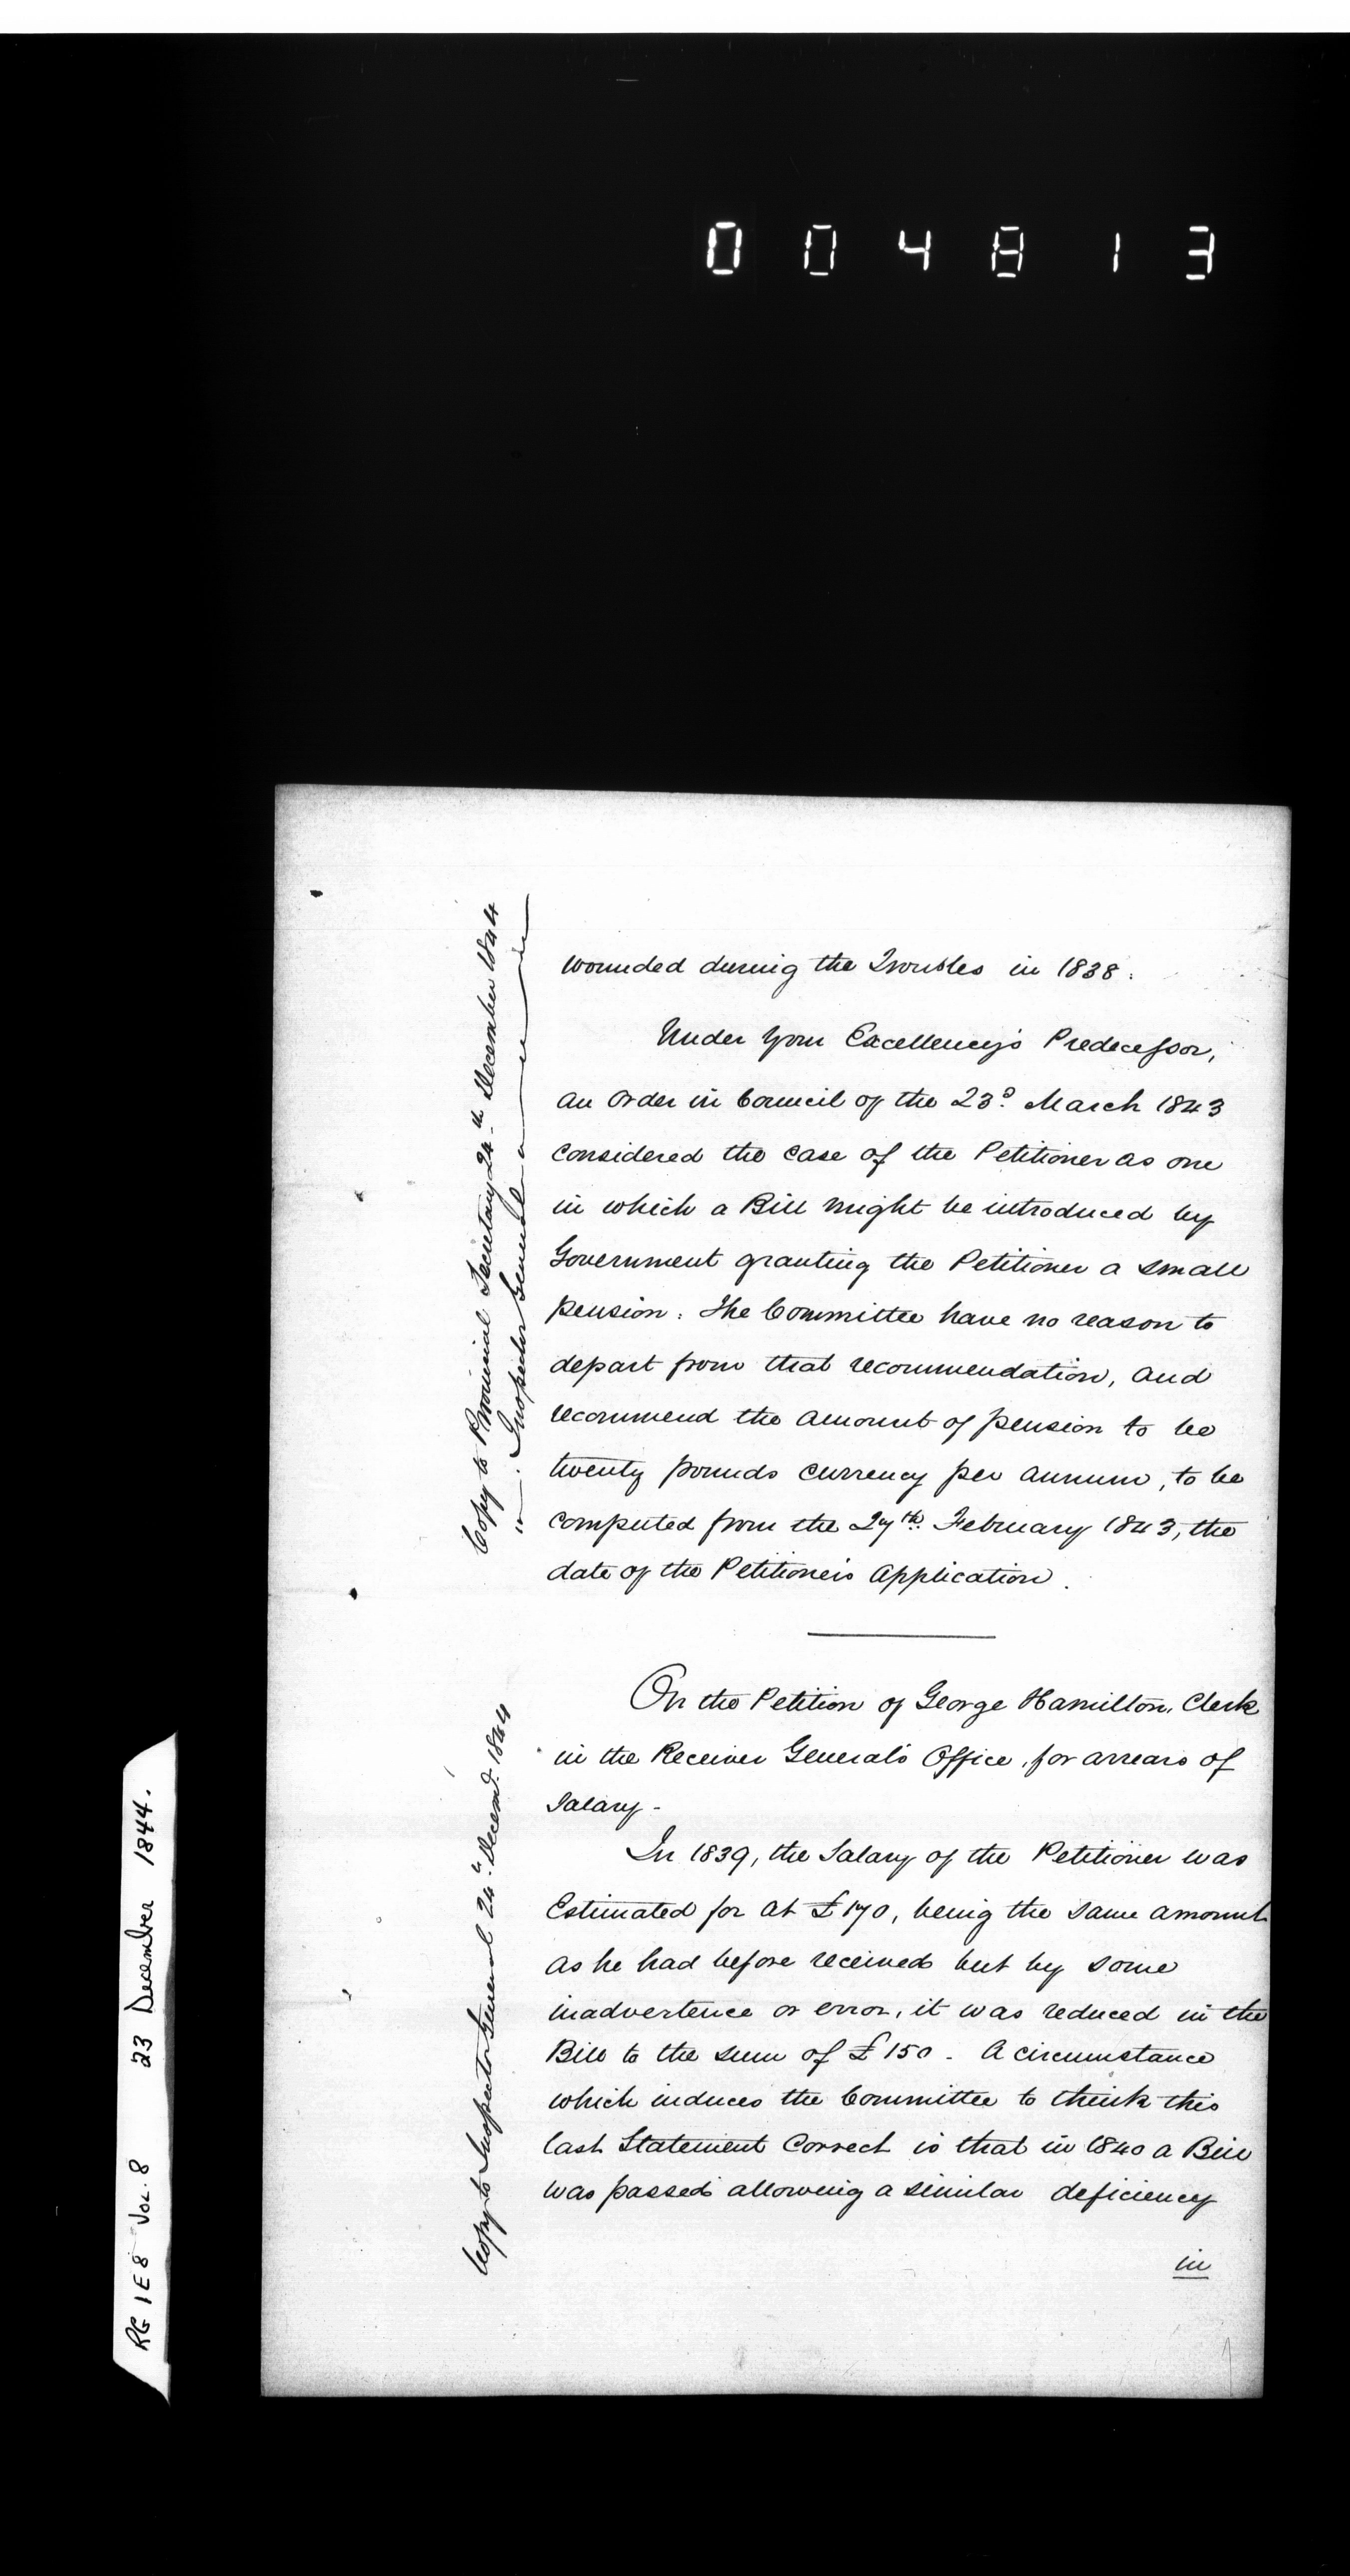 004813
wounded during the Troubles in 1838.
Under Your Excellency's Predecessor,
an Order in Council of the 23d. March 1843
considered the case of the Petitioner as one
in which a Bill might be introduced by
Government granting the Petitioner a small
pension. The Committee have no reason to
depart from that recommendation, and
recommend the amount of pension to be
twenty pounds currency per annum, to be
computed from the 27th. February 1843, the
date of the Petitioner's Application.
Copy to Provincial Secretary 24th December 1844
" Inspector General " " "
On the Petition of George Hamilton, Clerk
in the Receiver General's Office, for arrears of
Salary -
In 1839, the Salary of the Petitioner was
Estimated for at £170, being the same amount
as he had before received but by some
inadvertence or error, it was reduced in the
Bill to the sum of £150. A circumstance
which induces the Committee to think this
last Statement Correct is that in 1840 a Bill
was passed allowing a similar deficiency
in
Copy to Inspector General 24th Decemr. 1844
RG 1 E 8 Vol. 8 23 December 1844.